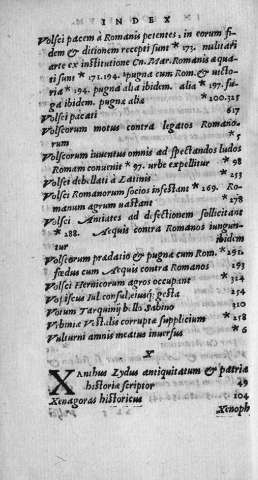 INDEX
Volsci pacem à Romanis petentes, in eorum fi-
dem & ditionem recepti sunt * 173. militari
arte ex institutione Cn. Mar. Romanis aqua-
ti sunt * 171.194. pugna cum Rom. & victo-
ria * 194. pugna alia ibidem. alia * 197. fu-
ga ibidem. pugna alia * 200.325
Volsci pacati 617
Volscorum motus contra legatos Romano-
rum * 5
Volscorum iuuentus omnis ad spectandos ludos
Romam conuenit * 97. urbe expellitur * 98
Volsci debellati à Latinis * 253
Volsci Romanorum socios infestant * 269. Ro-
manum agrum uastant * 278
Volsci Antiates ad defectionem sollicitant
* 288. Aequis contra Romanos iungun-
tur ibidem
Volscorum prædatio & pugna cum Rom. * 291.
fœdus cum Aequis contra Romanos 293
Volsci Hernicorum agros occupant * 314
Vopiscus Iul. consul, eiusq; gesta 254
Votum Tarquinij bello Sabino 310
Vibiniæ Vestalis corruptæ supplicium * 258
Vulturni amnis meatus inuersus * 6
X
XAnthus Lydus antiquitatum & patria
historiæ scriptor 49
Xenagoras historicus 104
Xenoph